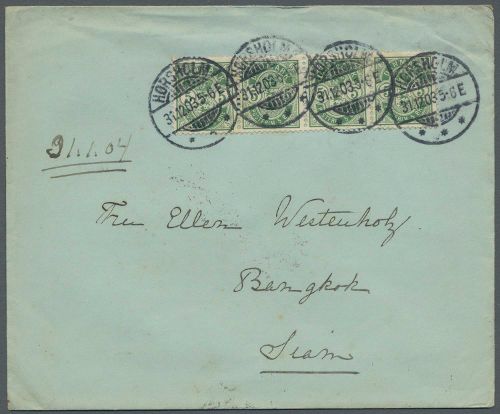 HØRSHOLM
31.12.03.5-6E
HØRSHOLM
31.12.03.5-6E
HØRSHOLM
31.12.03.5-6E
HØRSHOLM
31.12.03.5-6E
31.1.04
Fru Ellen Westenholz
Bangkok
Siam